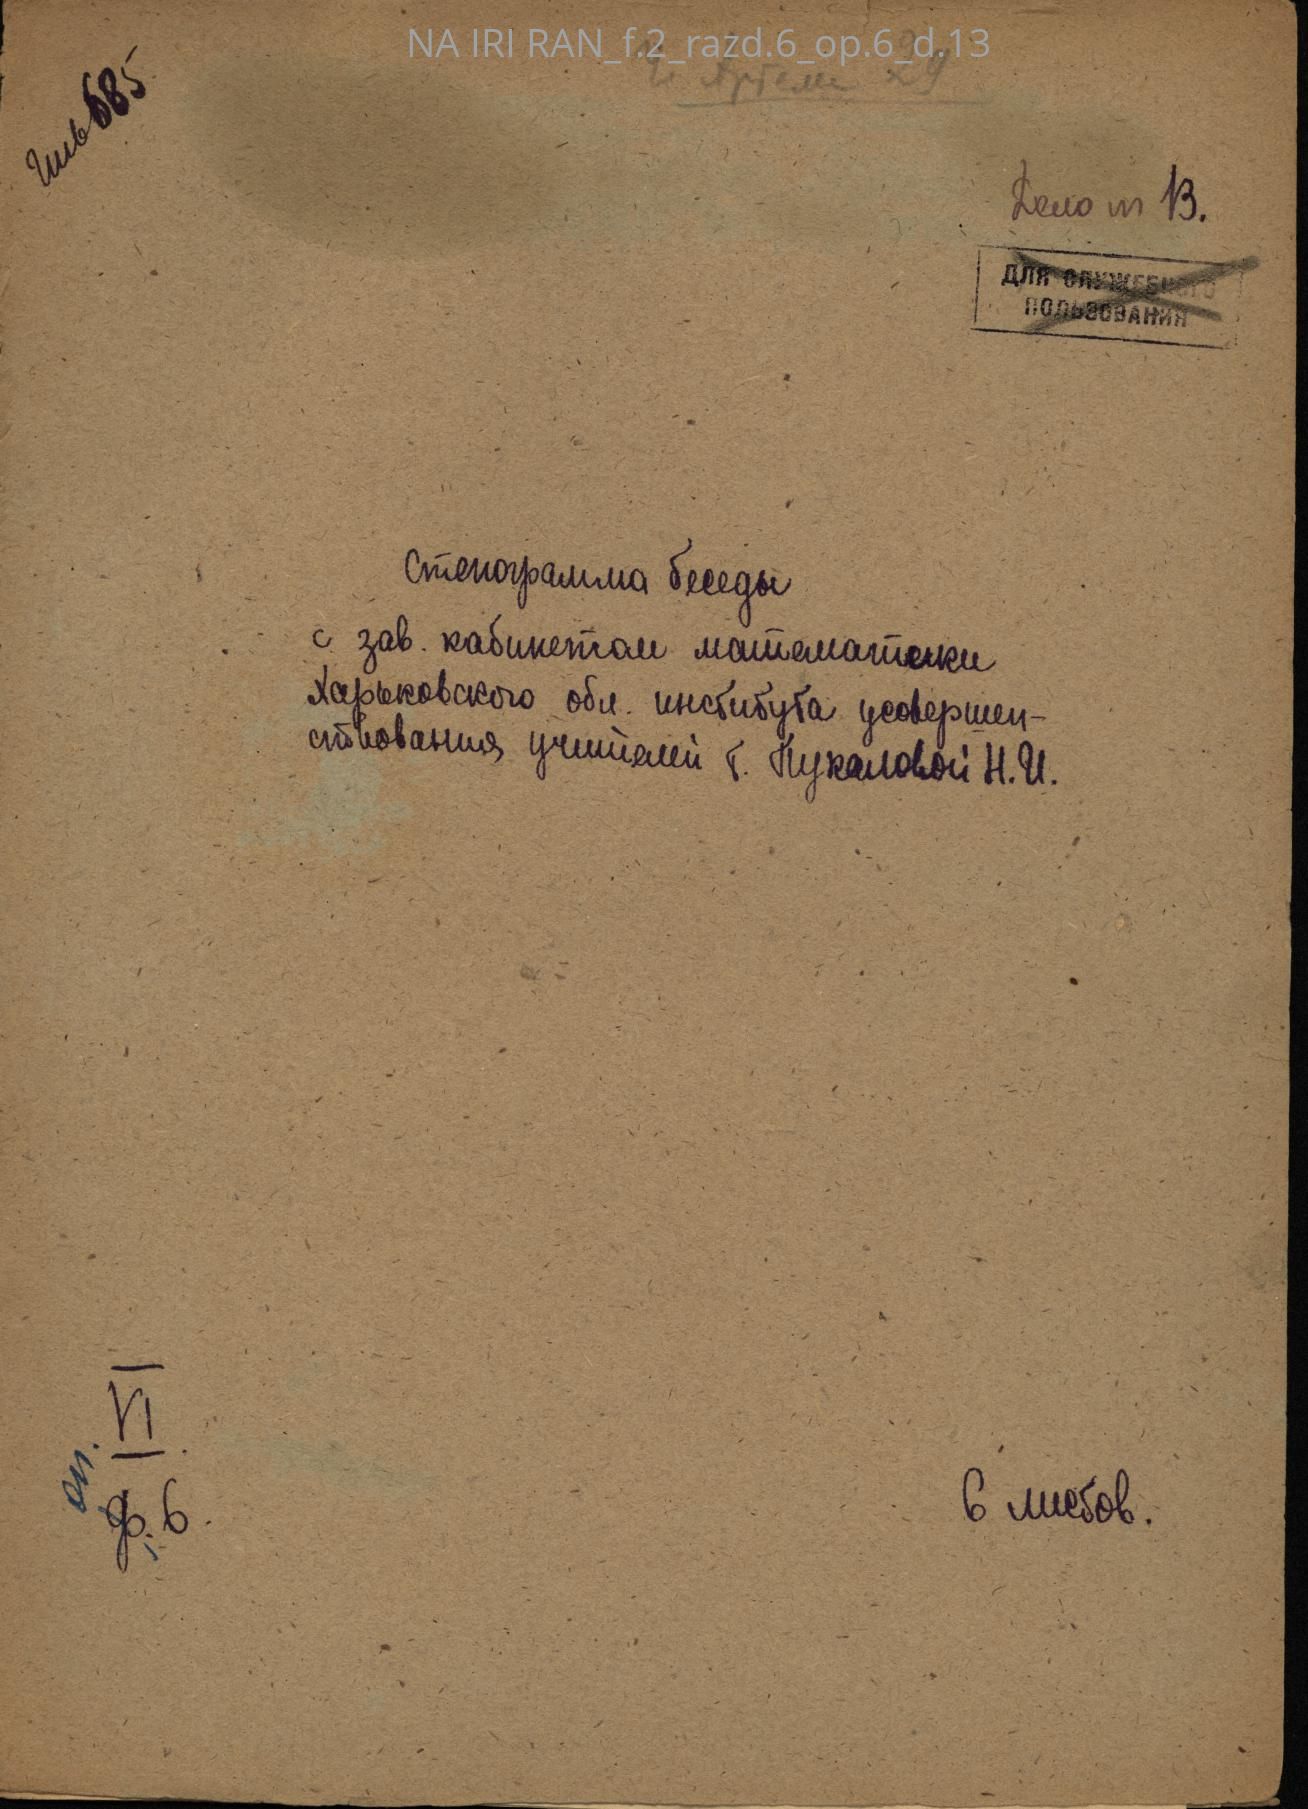 NA IRI RAN_f.2_razd.6_op.6_d.13
29
Инв 685
Дело № 13.
ДЛЯ СЛУЖЕБНОГО
ПОЛЬЗОВАНИЯ
Стенограмма беседы
с зав. кабинетом математики
Харьковского обл. института усовершен-
ствования учителей т. Пукаловой Н.И.
VI
оп. 6.
6 листов.